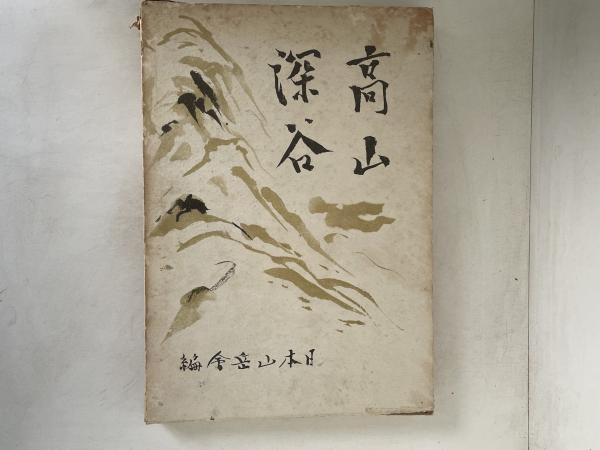 高山
深谷
日本山岳會編